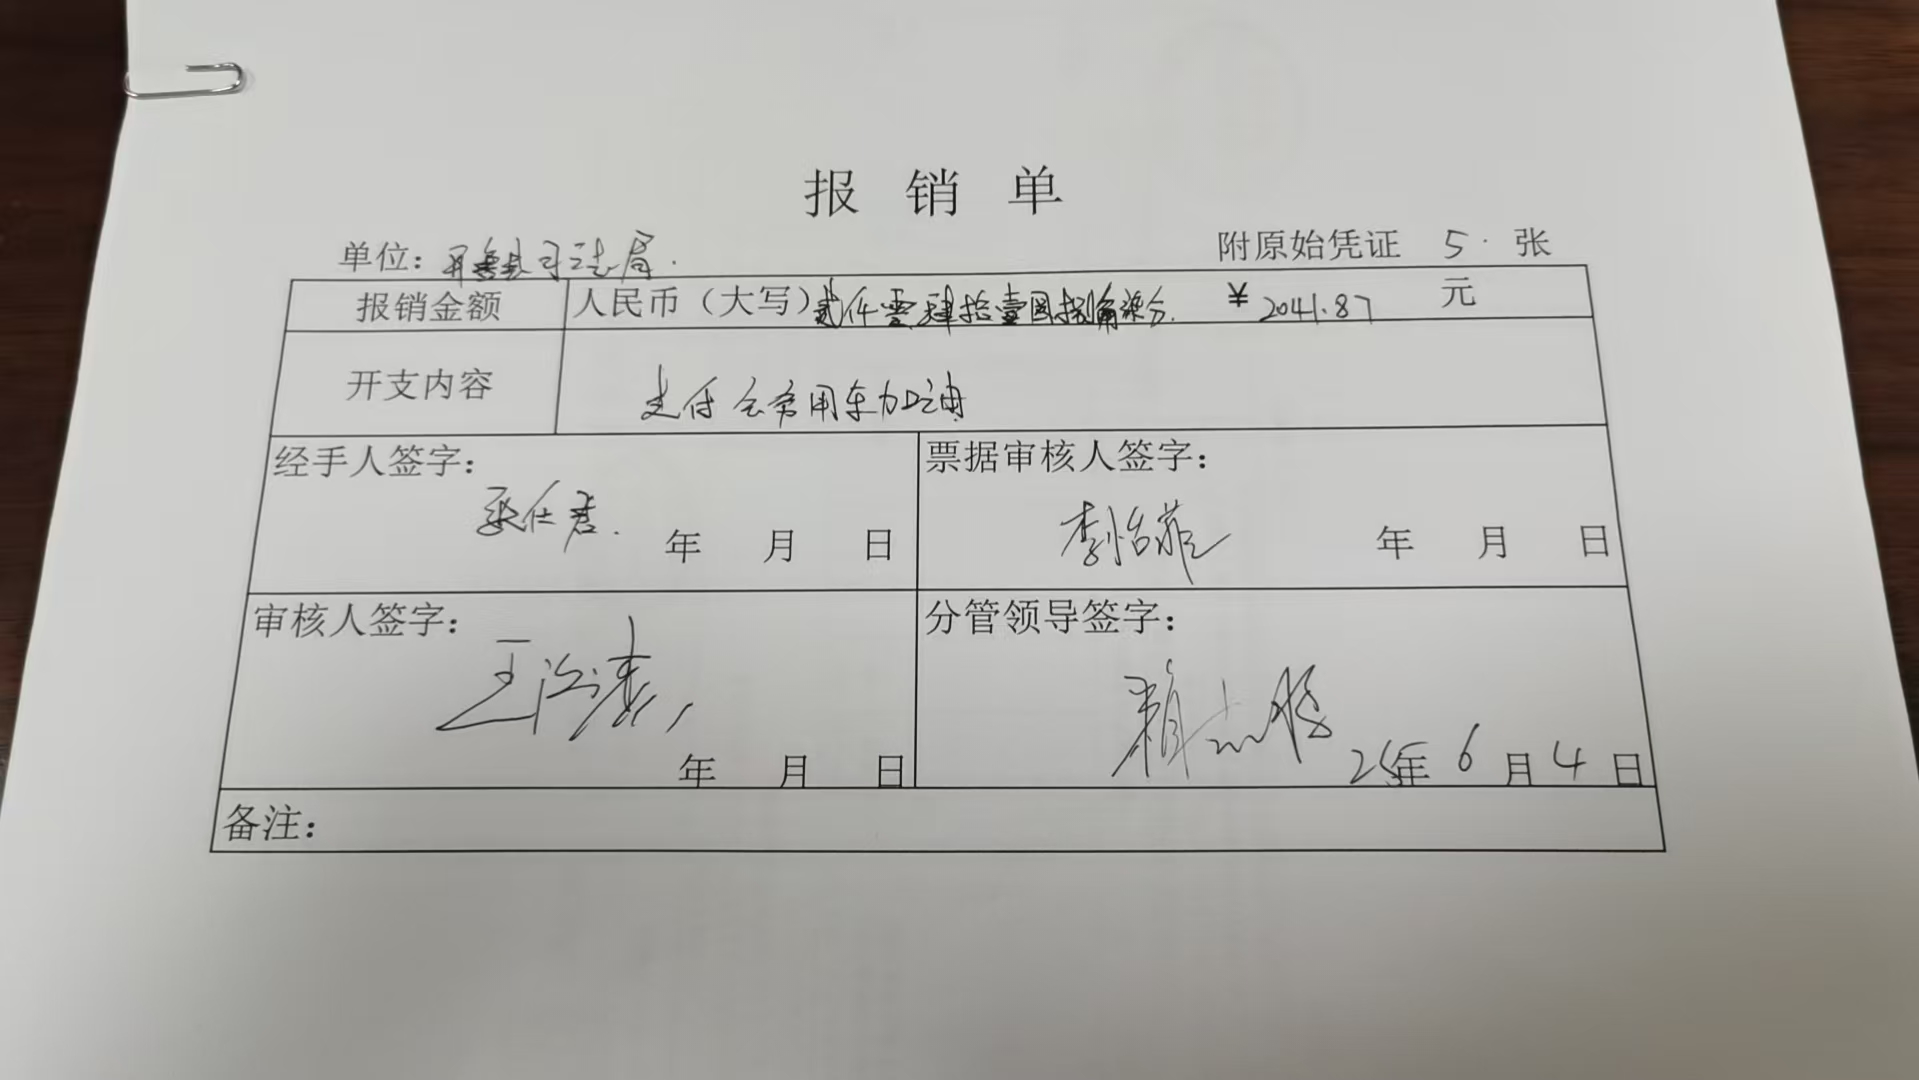 报 销 单
单位：开鲁县司法局. 附原始凭证 5. 张
报销金额 人民币（大写）贰仟零肆拾壹圆捌角柒分. ¥ 2041.87 元
开支内容 支付公务用车加油
经手人签字： 票据审核人签字：
李怡菲
年 月 日 年 月 日
审核人签字： 分管领导签字：
年 月 日 25年 6月 4日
备注：